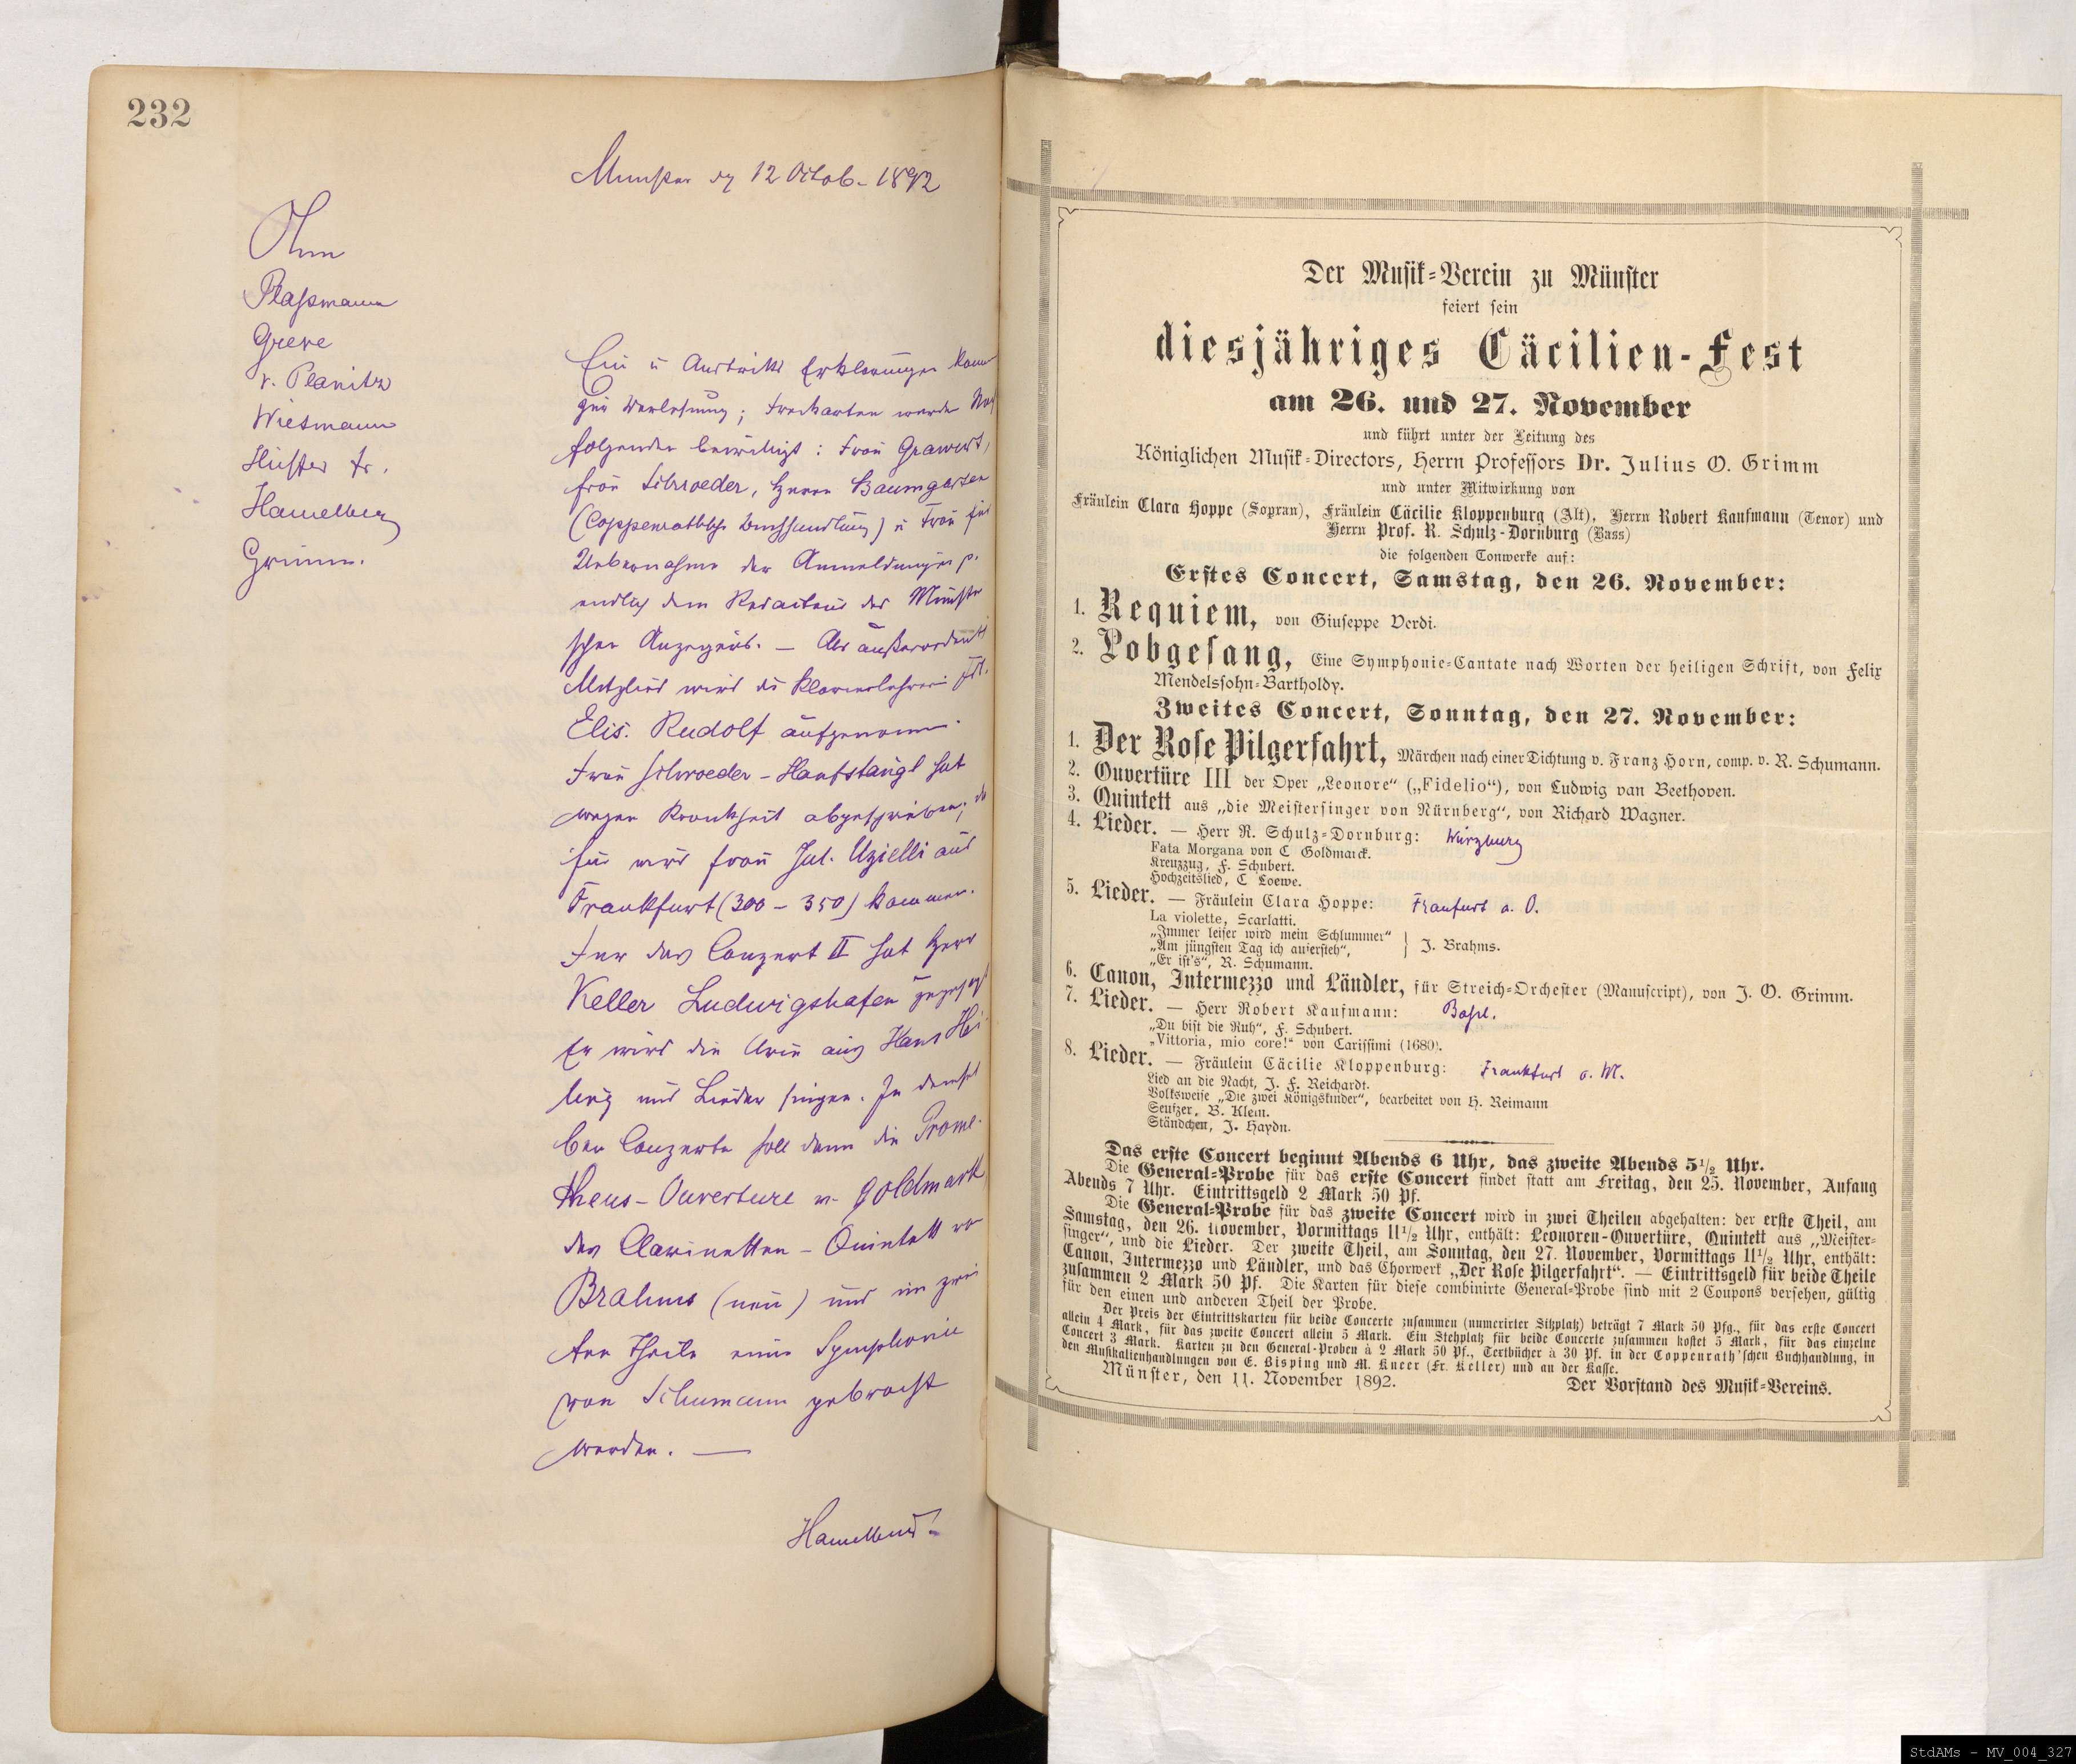 232
Münster dz 12 Octob. 1892
Ohm
Plaßmann
Greve
v. Planitz
Wiesmann
Hüffer Fr.
Hamelberg
Grimm.
Ein u Austritts Erklärungen kom
zur Verlesung; Freikarten werden Nach
folgenden bewilligt: Frau Grawert,
Frau Schroeder, Herrn Baumgarten
(Coppenrathsche Buchhandlung) u Frau für
Uebernahme der Anmeldungen p.
endlich dem Redacteur des Münste
schen Anzeigers. — Als außerordentl
Mitglied wird die Klavierlehrerin Frl.
Elis. Rudolf aufgenommen.
Frau Schroeder-Hanfstängl hat
wegen Krankheit abgeschrieben; da
für wird Frau Jul. Uzielli aus
Frankfurt (300 – 350) kommen.
Für das Conzert II hat Herr
Keller Ludwigshafen zugesagt
Er wird die Arie aus Hans Hei
ling und Lieder singen. In demsel
ben Conzerte soll dann die Prome-
theus-Ouverture v. Goldmark
das Clarinetten-Quintett vo
Brahms (neu) und im zwei
ten Theile eine Symphonie
von Schumann gebracht
werden. —
Hamelberg
Der Musik-Verein zu Münster
feiert sein
diesjähriges Cäcilien-Fest
am 26. und 27. November
und führt unter der Leitung des
Königlichen Musik-Directors, Herrn Professors Dr. Julius O. Grimm
und unter Mitwirkung von
Fräulein Clara Hoppe (Sopran), Fräulein Cäcilie Kloppenburg (Alt), Herrn Robert Kaufmann (Tenor) und
Herrn Prof. R. Schulz-Dornburg (Bass)
die folgenden Tonwerke auf:
Erstes Concert, Samstag, den 26. November:
1. Requiem, von Giuseppe Verdi.
2. Lobgesang, Eine Symphonie-Cantate nach Worten der heiligen Schrift, von Felix
Mendelssohn-Bartholdy.
Zweites Concert, Sonntag, den 27. November:
1. Der Rose Pilgerfahrt, Märchen nach einer Dichtung v. Franz Horn, comp. v. R. Schumann.
2. Ouvertüre III der Oper „Leonore“ („Fidelio“), von Ludwig van Beethoven.
3. Quintett aus „die Meistersinger von Nürnberg“, von Richard Wagner.
4. Lieder. — Herr R. Schulz-Dornburg: Würzburg
Fata Morgana von C Goldmarck.
Kreuzzug, F. Schubert.
Hochzeitslied, C Loewe.
5. Lieder. — Fräulein Clara Hoppe: Franfurt a. O.
La violette, Scarlatti.
„Immer leiser wird mein Schlummer“
„Am jüngsten Tag ich aufersteh“, } J. Brahms.
„Er ist's“, R. Schumann.
6. Canon, Intermezzo und Ländler, für Streich-Orchester (Manuscript), von J. O. Grimm.
7. Lieder. — Herr Robert Kaufmann: Basel.
„Du bist die Ruh“, F. Schubert.
„Vittoria, mio core!“ von Carissimi (1680).
8. Lieder. — Fräulein Cäcilie Kloppenburg: Frankfurt a. M.
Lied an die Nacht, J. F. Reichardt.
Volksweise „Die zwei Königskinder“, bearbeitet von H. Reimann
Seufzer, B. Klein.
Ständchen, J. Haydn.
Das erste Concert beginnt Abends 6 Uhr, das zweite Abends 5½ Uhr.
Die General-Probe für das erste Concert findet statt am Freitag, den 25. November, Anfang
Abends 7 Uhr. Eintrittsgeld 2 Mark 50 Pf.
Die General-Probe für das zweite Concert wird in zwei Theilen abgehalten: der erste Theil, am
Samstag, den 26. November, Vormittags 11½ Uhr, enthält: Leonoren-Ouvertüre, Quintett aus „Meister-
singer“, und die Lieder. Der zweite Theil, am Sonntag, den 27. November, Vormittags 11½ Uhr, enthält:
Canon, Intermezzo und Ländler, und das Chorwerk „Der Rose Pilgerfahrt“. — Eintrittsgeld für beide Theile
zusammen 2 Mark 50 Pf. Die Karten für diese combinirte General-Probe sind mit 2 Coupons versehen, gültig
für den einen und anderen Theil der Probe.
Der Preis der Eintrittskarten für beide Concerte zusammen (numerirter Sitzplatz) beträgt 7 Mark 50 Pfg., für das erste Concert
allein 4 Mark, für das zweite Concert allein 5 Mark. Ein Stehplatz für beide Concerte zusammen kostet 5 Mark, für das einzelne
Concert 3 Mark. Karten zu den General-Proben à 2 Mark 50 Pf., Textbücher à 30 Pf. in der Coppenrath'schen Buchhandlung, in
den Musikalienhandlungen von E. Bisping und M. Kneer (Fr. Keller) und an der Kasse.
Münster, den 11. November 1892.
Der Vorstand des Musik-Vereins.
StdAMs - MV_004_327